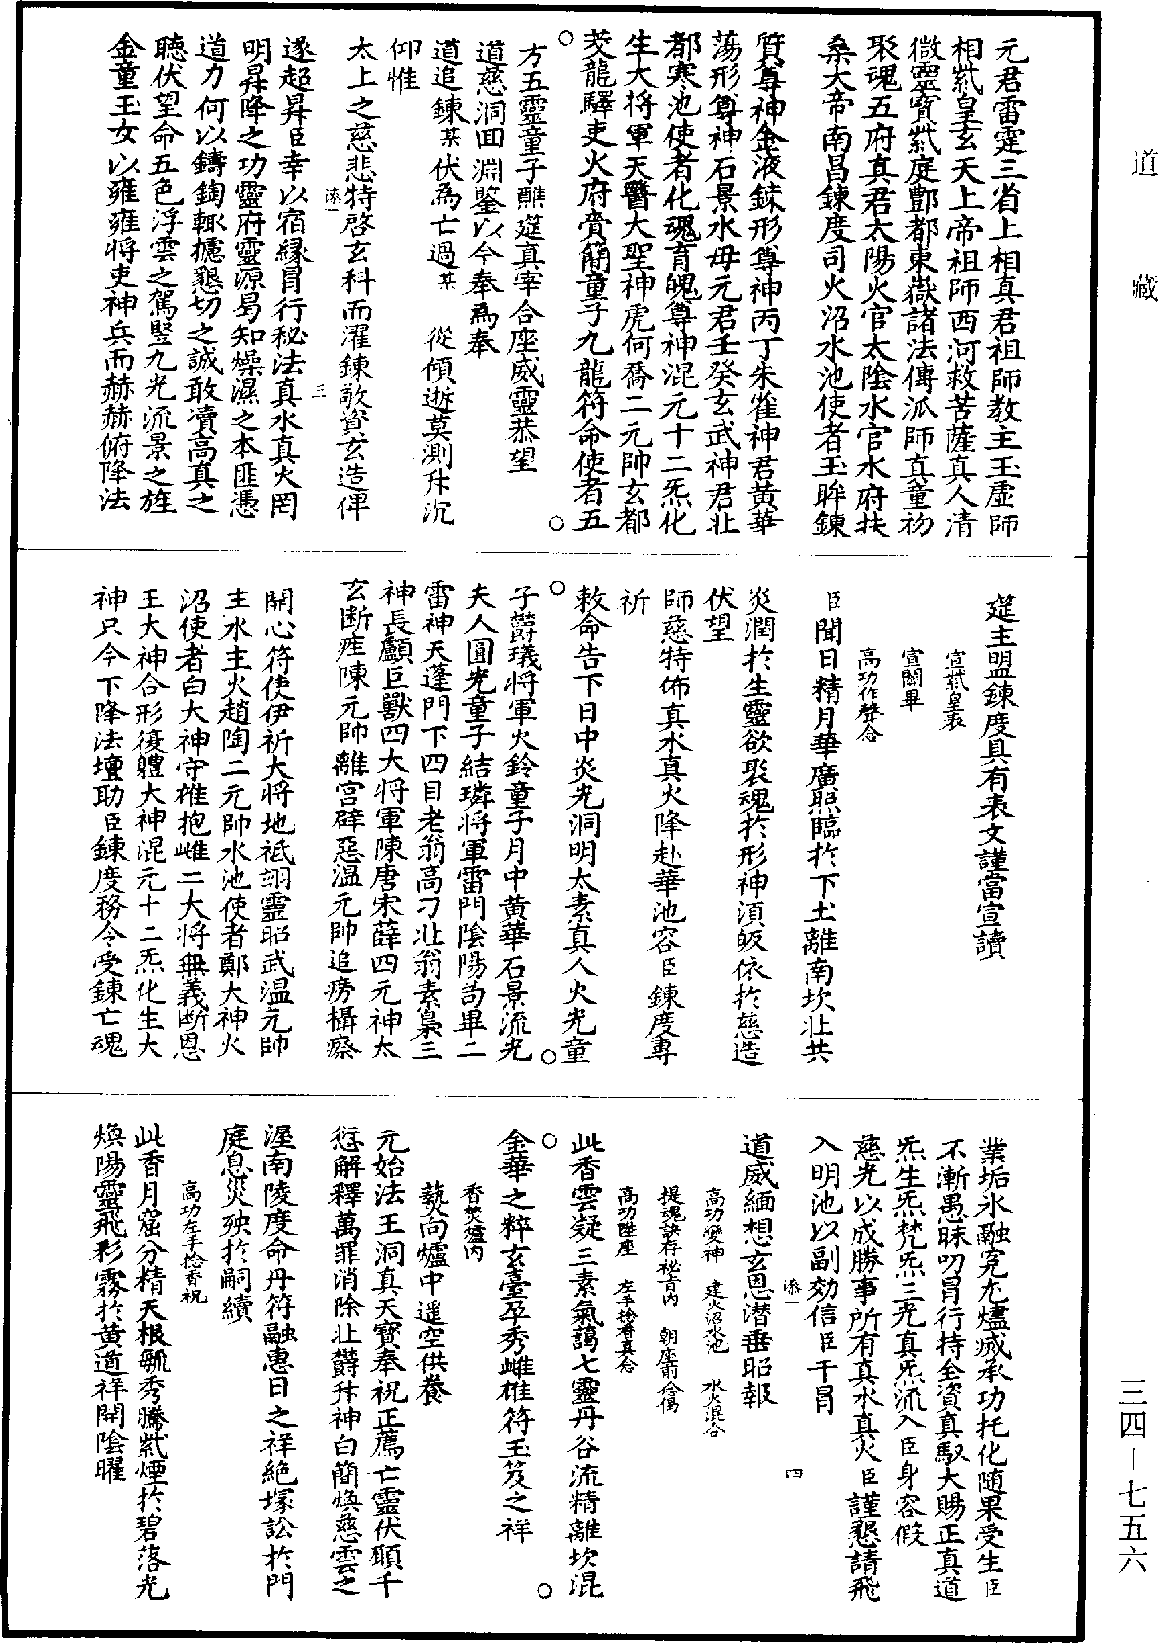 道藏
元君雷霆三省上相真君祖師教主玉虛師
相紫皇玄天上帝祖師西河救苦薩真人清
微靈寶紫庭酆都東嶽諸法傳派師真童初
聚魂五府真君太陽火官太陰水官水府扶
桑大帝南昌鍊度司火沼水池使者玉眸鍊
質尊神金液鍊形尊神丙丁朱雀神君黃華
蕩形尊神石景水母元君壬癸玄武神君北
都寒池使者化魂育魄尊神混元十二炁化
生大將軍天醫大聖神虎何喬二元帥玄都
茭龍驛吏火府賫簡童子九龍符命使者五
方五靈童子醮筵真宰合座威靈恭望
道慈洞回淵鑒以今奉為奉
道追鍊某伏為亡過某 從傾逝莫測升沉
仰惟
太上之慈悲特啓玄科而濯鍊敬資玄造俾
遂超昇臣幸以宿緣冒行秘法真水真火罔
明昇降之功靈府靈源曷知燥濕之本匪憑
道力何以鑄鍧輒攄懇切之誠敢瀆高真之
聽伏望命五色浮雲之駕豎九光流景之旌
金童玉女以雍雍將吏神兵而赫赫俯降法
筵主盟鍊度具有表文謹當宣讀
宣紫皇表
宣關畢
高功作聲念
臣聞日精月華廣照臨於下土離南坎北共
炎潤於生靈欲聚魂於形神須皈依於慈造
伏望
師慈特佈真水真火降赴華池容臣鍊度專
祈
敕命告下日中炎光洞明太素真人火光童
子欝璣將軍火鈴童子月中黃華石景流光
夫人圓光童子結璘將軍雷門陰陽苟畢二
雷神天蓬門下四目老翁高刁北翁素梟三
神長顱巨獸四大將軍陳唐宋薛四元神太
玄断痊陳元帥離宮辟惡溫元帥追癆攝瘵
開心符使伊祈大將地祇翊靈昭武溫元帥
主水主火趙陶二元帥水池使者鄭大神火
沼使者白大神守雄抱雌二大將無義断恩
王大神合形復體大神混元十二炁化生大
神只今下降法壇助臣鍊度務令受鍊亡魂
業垢氷融冤尤燼滅承功托化隨果受生臣
不漸愚昧叨冒行持全資真馭大賜正真道
炁生炁梵炁三光真炁流入臣身容假
慈光以成勝事所有真水真火臣謹懇請飛
入明池以副効信臣干冒
道威緬想玄恩潜垂昭報
高功變神 建火沼水池 水火混合
提魂訣存秘旨內 朝座肅念偈
高功陞座 左手捻香真念
此香雲凝三素氣藹七靈丹谷流精離坎混
金華之粹玄臺孕秀雌雄符玉笈之祥
香焚爐內
爇向爐中遥空供養
元始法王洞真天寶奉祝正薦亡靈伏願千
愆解釋萬罪消除北欝升神白簡煥慈雲之
渥南陵度命丹符融惠日之祥絶塚訟於門
庭息災殃於嗣續
高功左手捻香祝
此香月窟分精天根毓秀騰紫煙於碧落光
煥陽靈飛彩霧於黃道祥開陰曜
三四—七五六